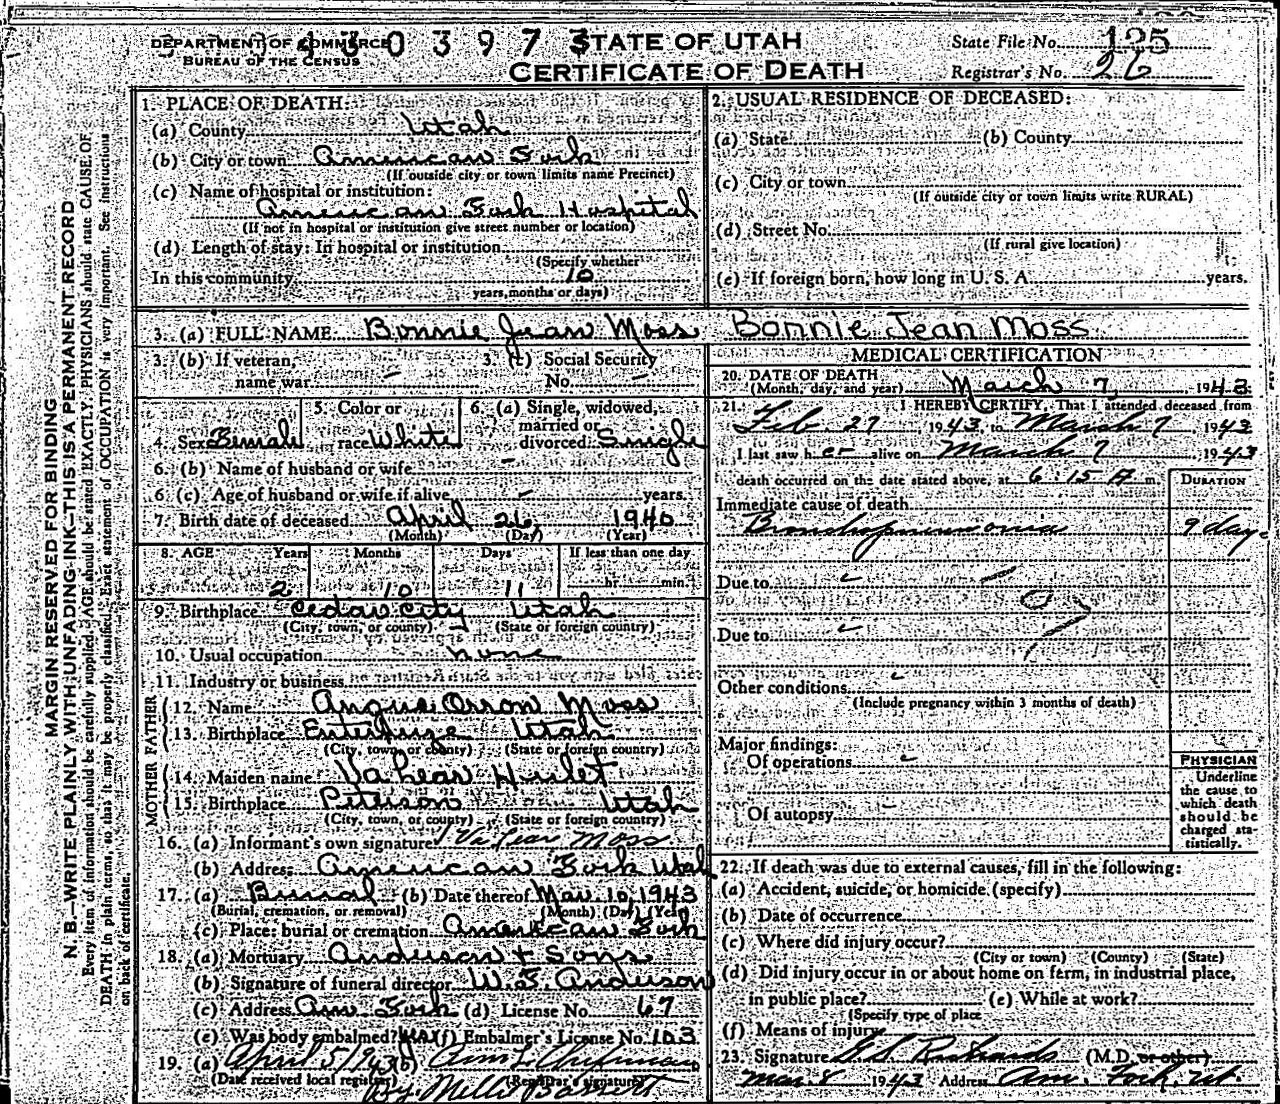 DEPARTMENT OF COMMERCE
BUREAU OF THE CENSUS
4 3 0 3 9 7 3
STATE OF UTAH
CERTIFICATE OF DEATH
State File No. 125
Registrar's No. 26
MARGIN RESERVED FOR BINDING
N. B.—WRITE PLAINLY WITH UNFADING INK—THIS IS A PERMANENT RECORD
Every item of information should be carefully supplied. AGE should be stated EXACTLY. PHYSICIANS should state CAUSE OF
DEATH in plain terms, so that it may be properly classified. Exact statement of OCCUPATION is very important. See instructions
on back of certificate.
1. PLACE OF DEATH:
(a) County Utah
(b) City or town American Fork
(If outside city or town limits name Precinct)
(c) Name of hospital or institution:
American Fork Hospital
(If not in hospital or institution give street number or location)
(d) Length of stay: In hospital or institution
(Specify whether
In this community 10
years, months or days)
2. USUAL RESIDENCE OF DECEASED:
(a) State (b) County
(c) City or town
(If outside city or town limits write RURAL)
(d) Street No.
(If rural give location)
(e) If foreign born, how long in U. S. A. years.
3. (a) FULL NAME: Bonnie Jean Moss Bonnie Jean Moss
3. (b) If veteran, name war –
3. (c) Social Security No. –
4. Sex Female
5. Color or race White
6. (a) Single, widowed, married or divorced Single
6. (b) Name of husband or wife –
6. (c) Age of husband or wife if alive – years.
7. Birth date of deceased April 26, 1940
(Month) (Day) (Year)
8. AGE Years Months Days If less than one day
2 10 11 hr. min.
9. Birthplace Cedar City Utah
(City, town, or county) (State or foreign country)
10. Usual occupation none
11. Industry or business
FATHER
12. Name Angus Orson Moss
13. Birthplace Enterprize Utah
(City, town, or county) (State or foreign country)
MOTHER
14. Maiden name VaLear Hulet
15. Birthplace Peterson Utah
(City, town, or county) (State or foreign country)
16. (a) Informant's own signature VaLear Moss
(b) Address American Fork Utah
17. (a) Burial (b) Date thereof Mar. 10, 1943
(Burial, cremation, or removal) (Month) (Day) (Year)
(c) Place: burial or cremation American Fork
18. (a) Mortuary Anderson + Sons
(b) Signature of funeral director W. E. Anderson
(c) Address Am Fork (d) License No. 67
(e) Was body embalmed? yes (f) Embalmer's License No. 103
19. (a) April 5/1943 (b)
(Date received local registrar) (Registrar's signature)
By
MEDICAL CERTIFICATION
20. DATE OF DEATH
(Month, day, and year) March 7, 1943
21. I HEREBY CERTIFY, That I attended deceased from
Feb. 27, 1943, to March 7, 1943
I last saw her alive on March 7, 1943
death occurred on the date stated above, at 6:15 A m.
DURATION
Immediate cause of death
Bronchopneumonia 9 day
Due to
Due to
Other conditions
(Include pregnancy within 3 months of death)
Major findings:
Of operations
Of autopsy
PHYSICIAN
Underline
the cause to
which death
should be
charged sta-
tistically.
22. If death was due to external causes, fill in the following:
(a) Accident, suicide, or homicide (specify)
(b) Date of occurrence
(c) Where did injury occur?
(City or town) (County) (State)
(d) Did injury occur in or about home on farm, in industrial place,
in public place? (e) While at work?
(Specify type of place
(f) Means of injury
23. Signature Richards (M.D. or other)
Mar. 8 1943 Address Am. Fork, Ut.